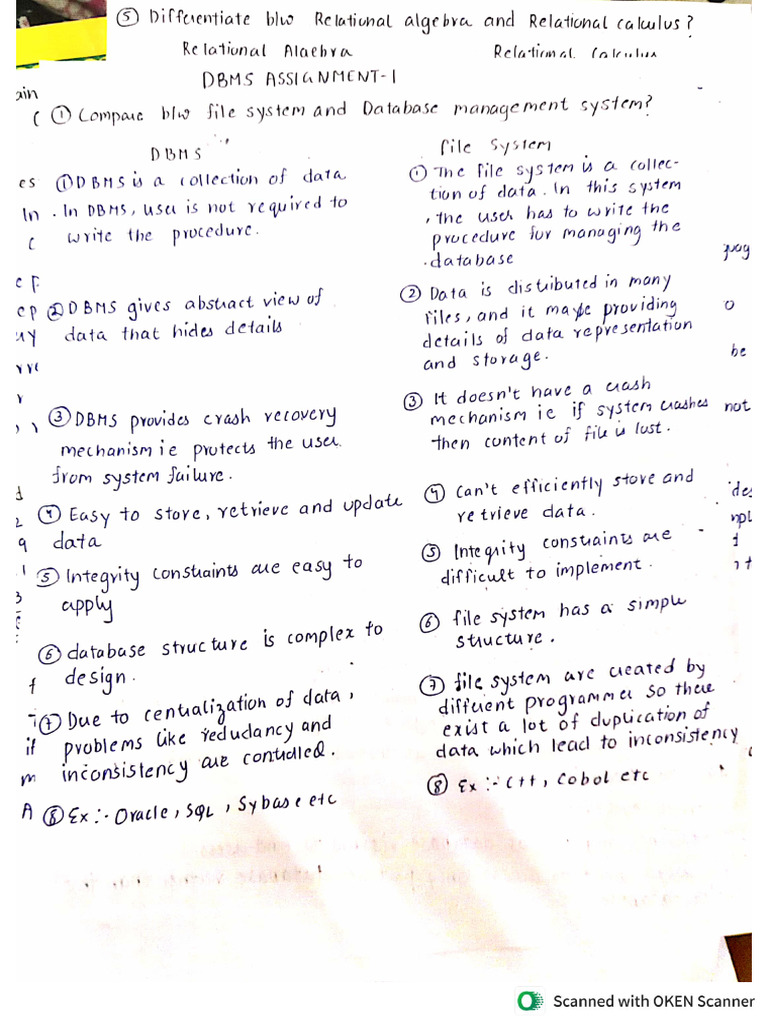 ⑤ Differentiate b/w Relational algebra and Relational calculus?
Relational Algebra Relational Calculus
DBMS ASSIGNMENT-1
ain
( ① Compare b/w file system and Database management system?
DBMS
es ① DBMS is a collection of data
In . In DBMS, user is not required to
( write the procedure.
ep ② DBMS gives abstract view of
data that hides details
③ DBMS provides crash recovery
mechanism ie protects the user
from system failure.
④ Easy to store, retrieve and update
data
⑤ Integrity constraints are easy to
apply
⑥ database structure is complex to
f design.
⑦ Due to centralization of data,
if problems like redudancy and
m inconsistency are controlled.
A ⑧ Ex :- Oracle, SQL, Sybase etc
file System
① The file system is a collec-
tion of data. In this system
, the user has to write the
procedure for managing the
. database
② Data is distributed in many
files, and it maybe providing
details of data representation
and storage.
be
③ It doesn't have a crash
mechanism ie if system crashes not
then content of file is lost.
④ Can't efficiently store and
retrieve data.
⑤ Integrity constraints are
difficult to implement.
⑥ file system has a simple
structure.
⑦ file system are created by
different programmer so there
exist a lot of duplication of
data which lead to inconsistency
⑧ Ex :- C++, Cobol etc
Scanned with OKEN Scanner